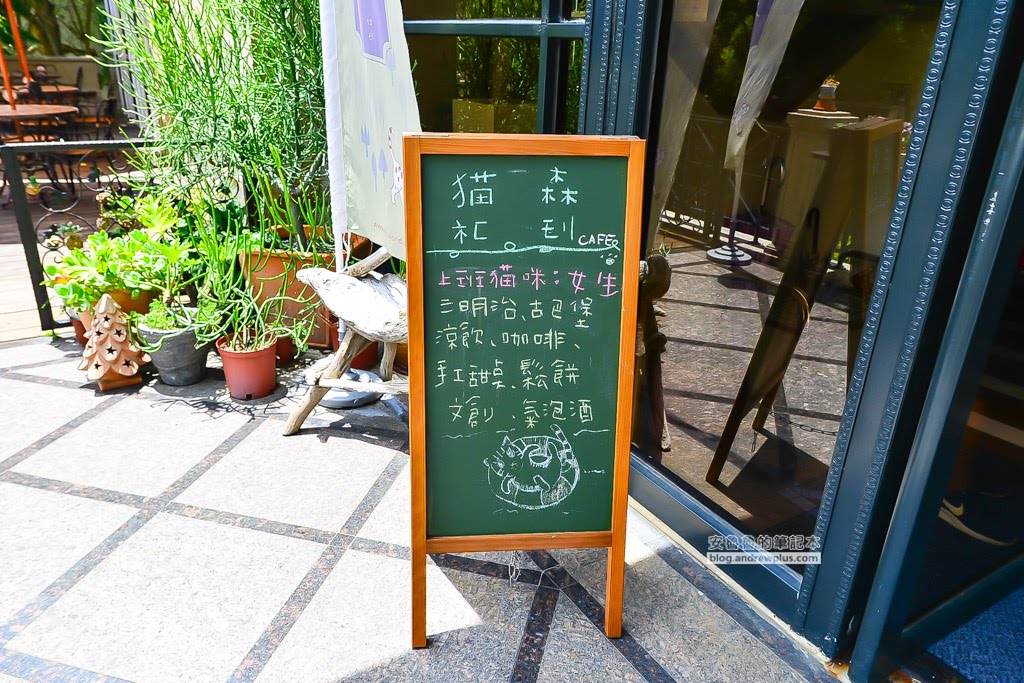 猫 森
社 刊 CAFE
上班猫咪：女生
三明治、古巴堡
涼飲、咖啡、
手工甜桌、鬆餅
文創、氣泡酒
安魯魯的筆記本
blog.andrewplus.com